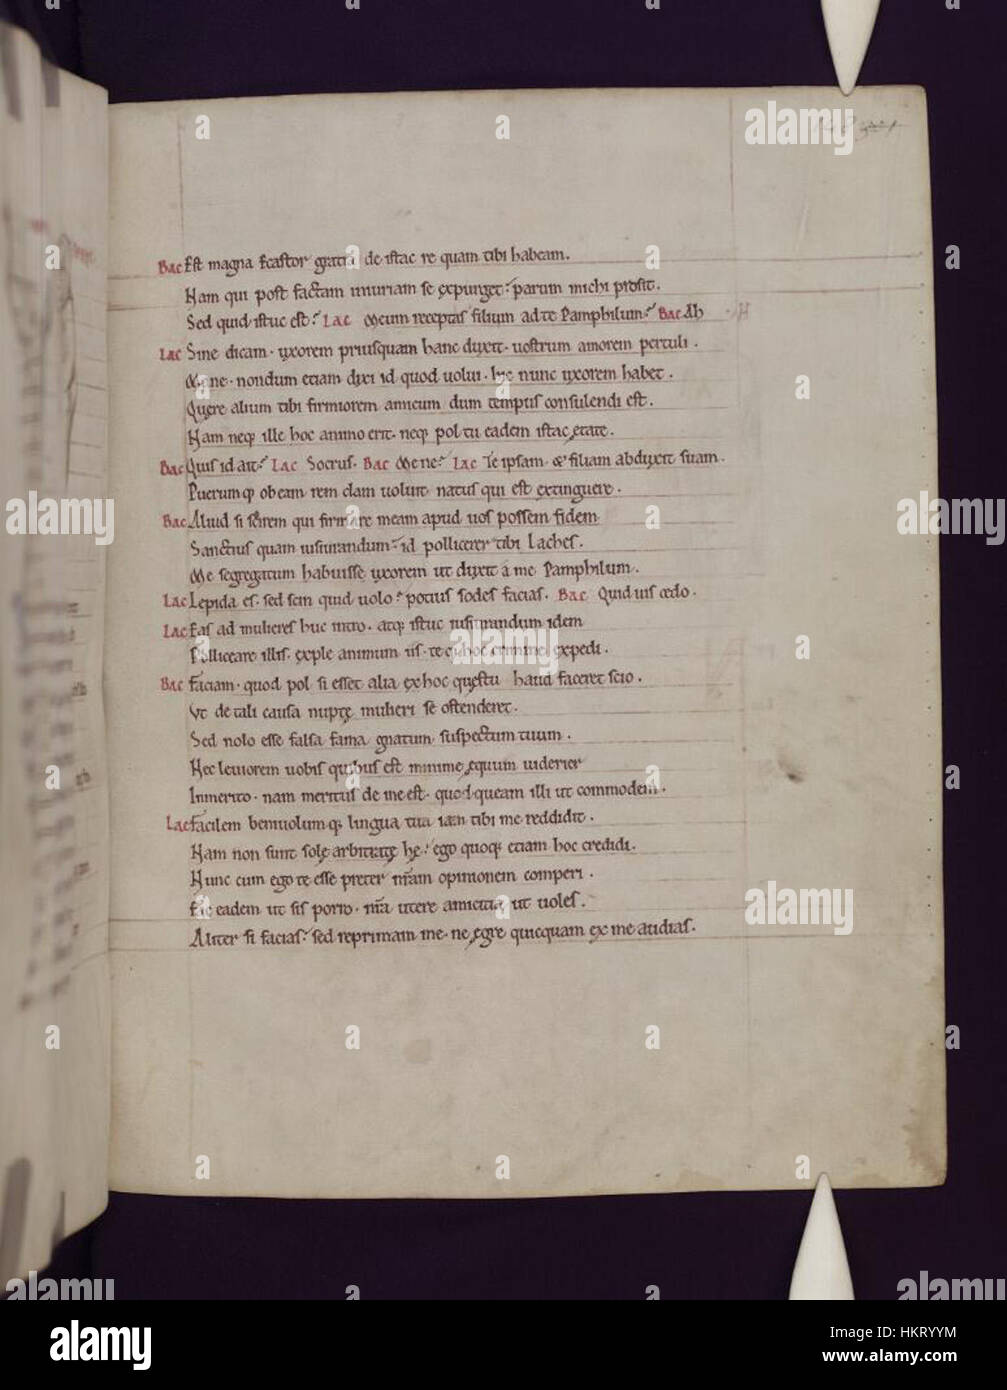 Bac Est magna Ecastor gratia de istac re quam tibi habeam.
Nam qui post factam iniuriam se expurget: parum michi prosit.
Sed quid istuc est? Lac Meum receptas filium ad te Pamphilum? Bac Ah
Lac Sine dicam. uxorem priusquam hanc dixit. uostrum amorem pertuli.
Mane. nondum etiam dixi id quod uolui. hic nunc uxorem habet.
Quere alium tibi firmiorem amicum dum tempus consulendi est.
Nam neq; ille hoc animo erit. neq; pol tu eadem istac ętate.
Bac Quis id ait? Lac Socrus. Bac Me ne? Lac Te ipsam. & filiam abduxit suam.
Puerumq; ob eam rem clam uoluit natus qui est extinguere.
Bac Aliud si scirem qui firmare meam apud uos possem fidem
Sanctius quam iusiurandum: id pollicerer tibi Laches.
Me segregatum habuisse uxorem ut duxit á me Pamphilum.
Lac Lepida es. sed scin quid uolo? potius sodes facias. Bac Quid uis cędo.
Lac Eas ad mulieres huc intro. atq; istuc iusiurandum idem
Polliceare illis. exple animum iis. te q; hoc crimine expedi.
Bac Faciam. quod pol si esset alia ex hoc questu haud faceret scio.
Vt de tali causa nuptę mulieri se ostenderet.
Sed nolo esse falsa fama gnatum suspectum tuum.
Nec leuiorem uobis quibus est minime ęquum uiderier
Inmerito. nam meritus de me est. quod queam illi ut commodem.
Lac Facilem beniuolumq; lingua tua iam tibi me reddidit.
Nam non sunt solę arbitratę hę: ego quoq; etiam hoc credidi.
Nunc cum ego te esse preter nr̄am opinionem comperi.
Fac eadem ut sis porro. nr̄a utere amicitia ut uoles.
Aliter si facias: sed reprimam me. ne ęgre quicquam ex me audias.
alamy
a
alamy stock photo
HKRYYM
www.alamy.com